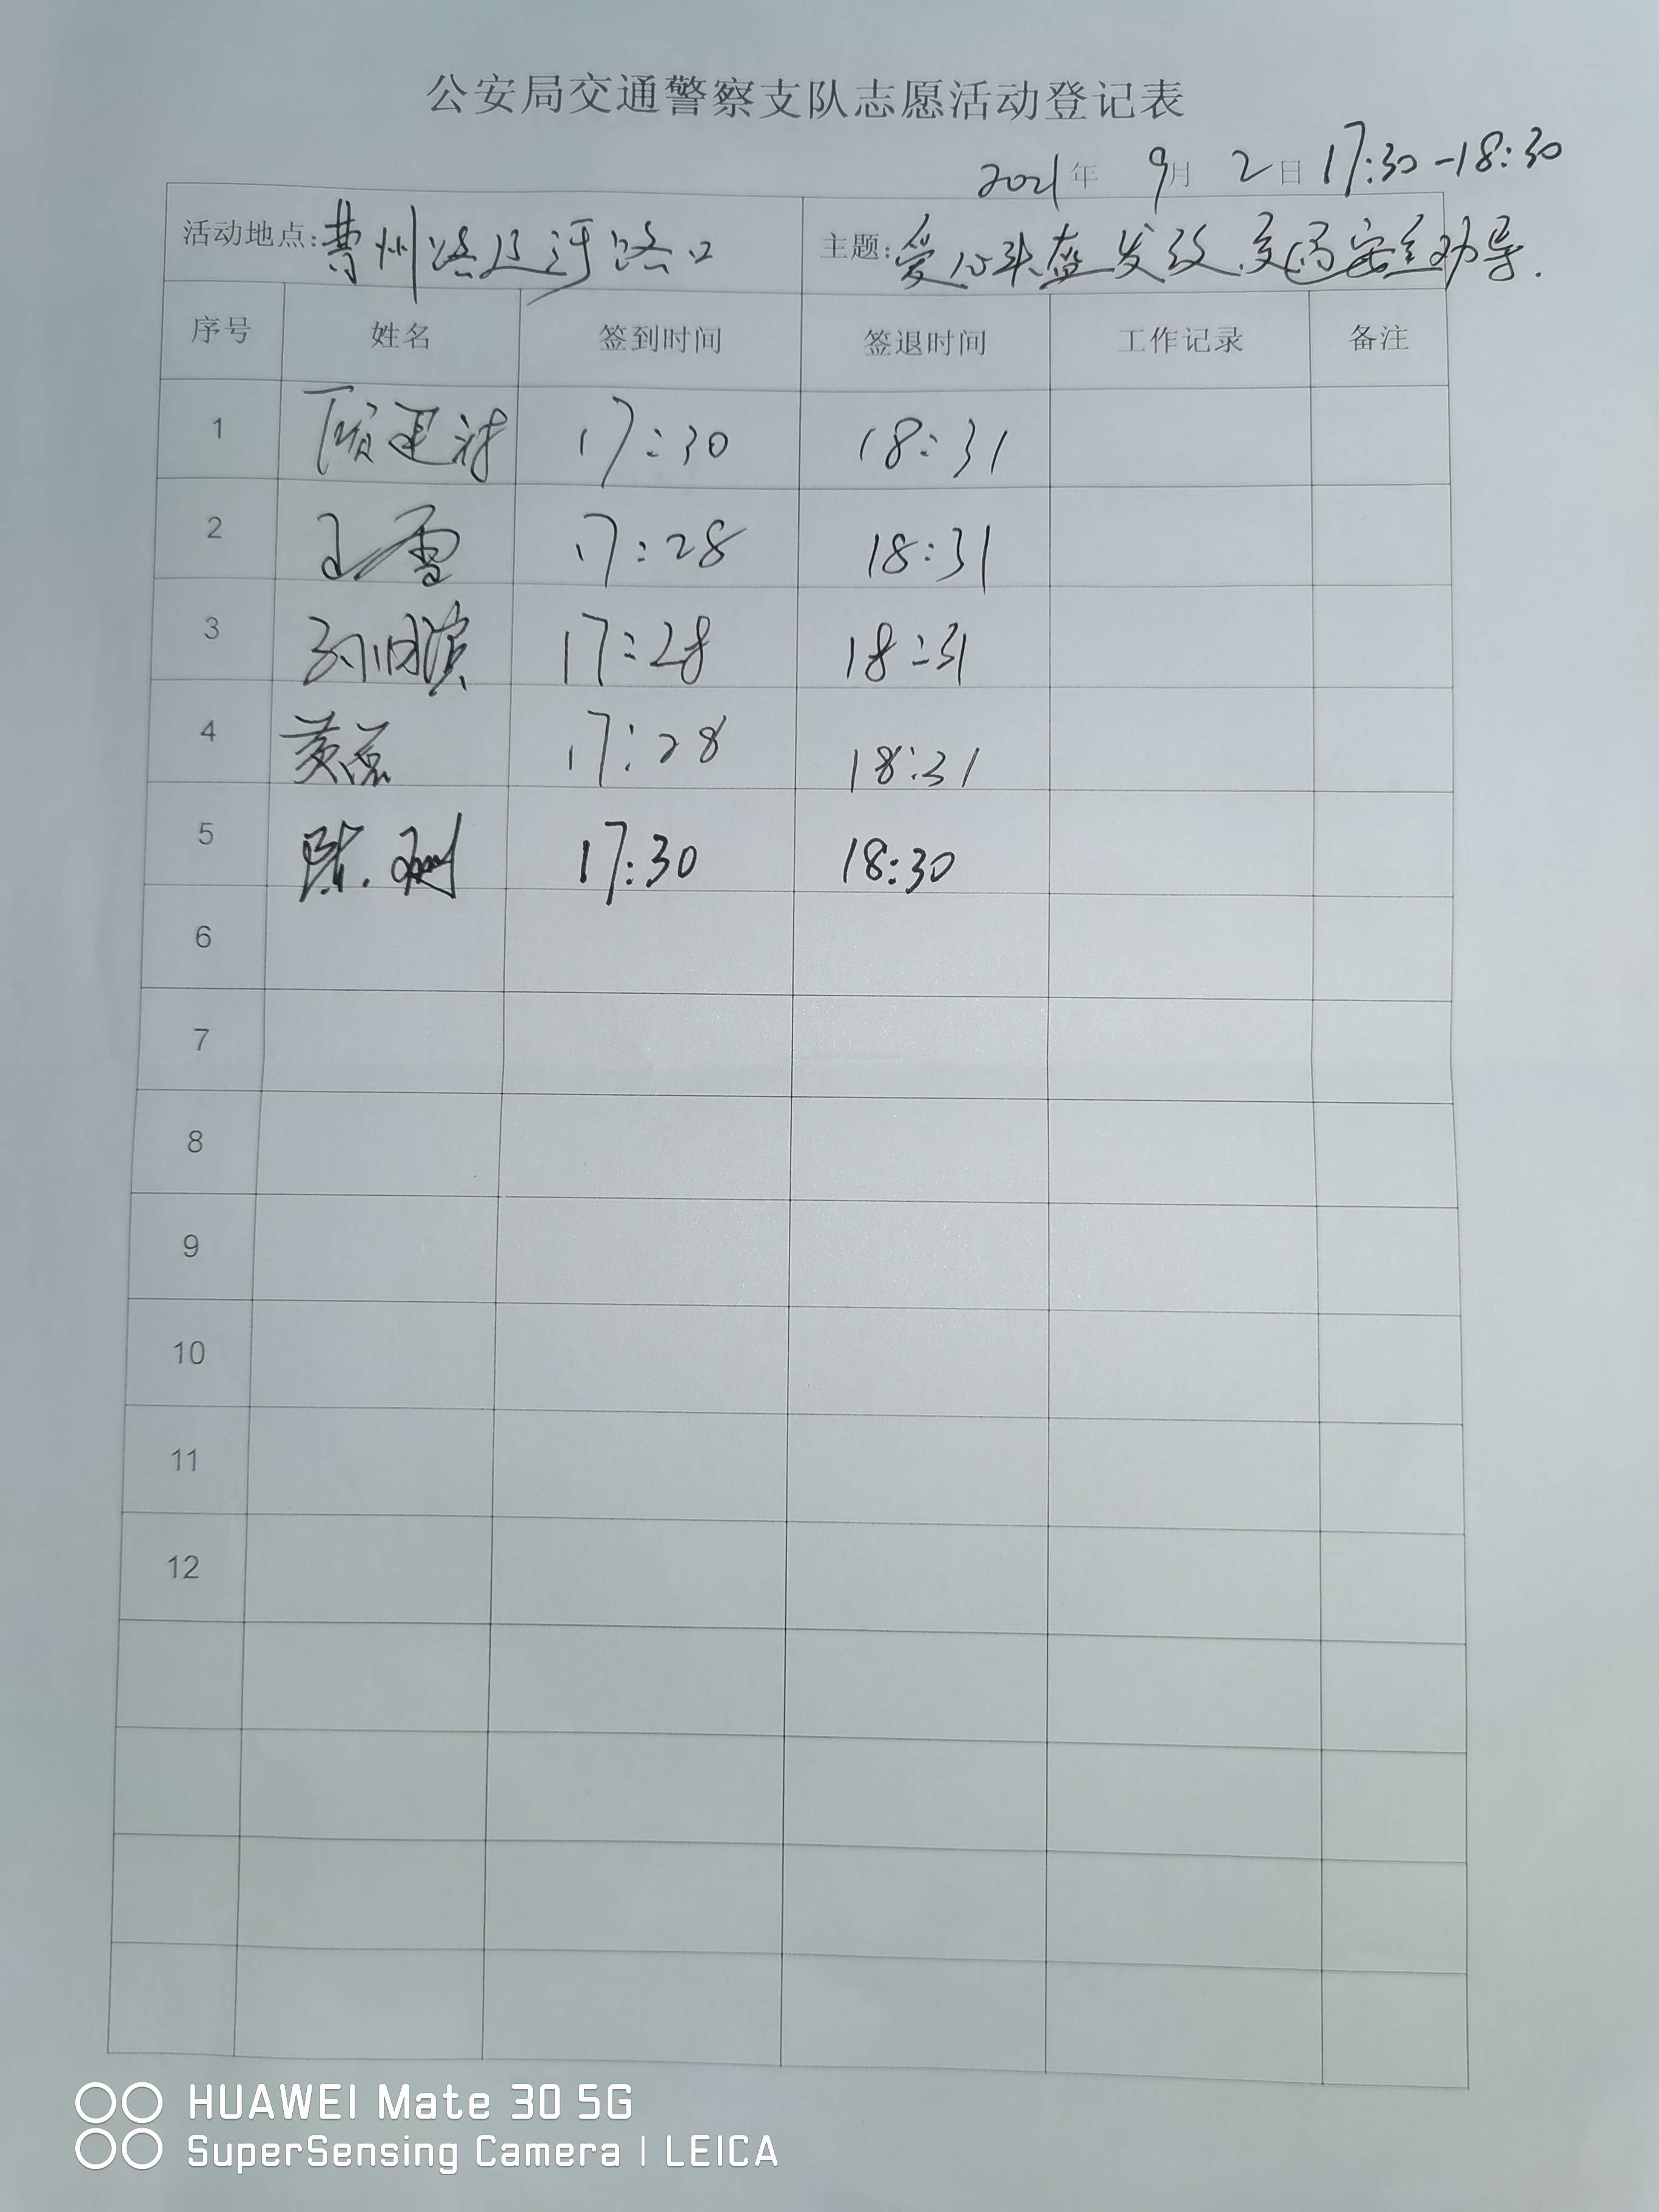 公安局交通警察支队志愿活动登记表
2021年 9月 2日 17:30-18:30
活动地点: 曹州路长江路口 主题: 爱心头盔发放,交通安全劝导.
序号 姓名 签到时间 签退时间 工作记录 备注
1 17:30 18:31
2 王雪 17:28 18:31
3 17:28 18:31
4 17:28 18:31
5 陈 17:30 18:30
6
7
8
9
10
11
12
HUAWEI Mate 30 5G
SuperSensing Camera | LEICA